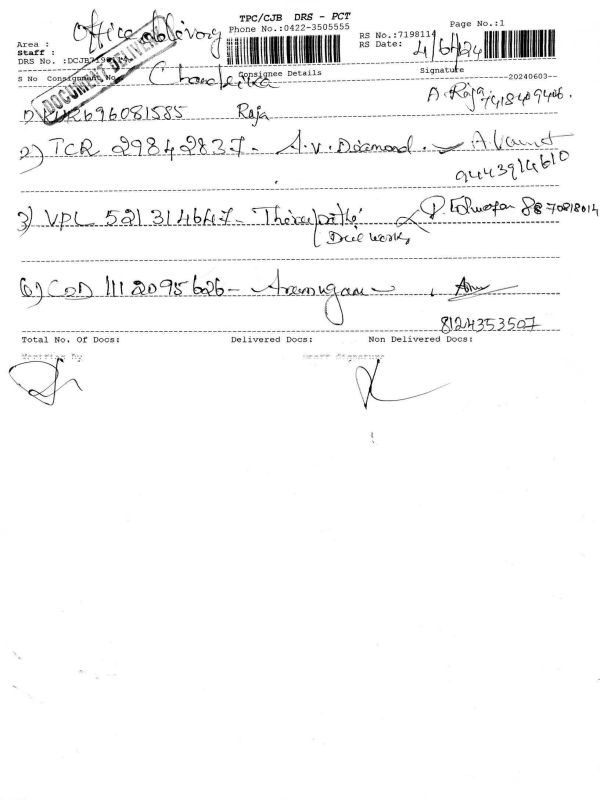 TPC/CJB DRS - PCT
Phone No.:0422-3505555
Page No.:1
RS No.:7198114
RS Date: 4/6/24
Area : Office delivery
Staff : Chandrika
DRS No. :DCJB
DOCUMENT DELIVERED
S No Consignment No Consignee Details Signature 20240603-
1) 696081585 Raja A. Raja 7418409406.
2) TCR 29842837 - A.V. Diamond.
9443914610
3) VPL 521314647 - 8870818014
6) COD 1112095626 - Arumugam
8124353507
Total No. Of Docs: Delivered Docs: Non Delivered Docs:
Verified By Staff Signature